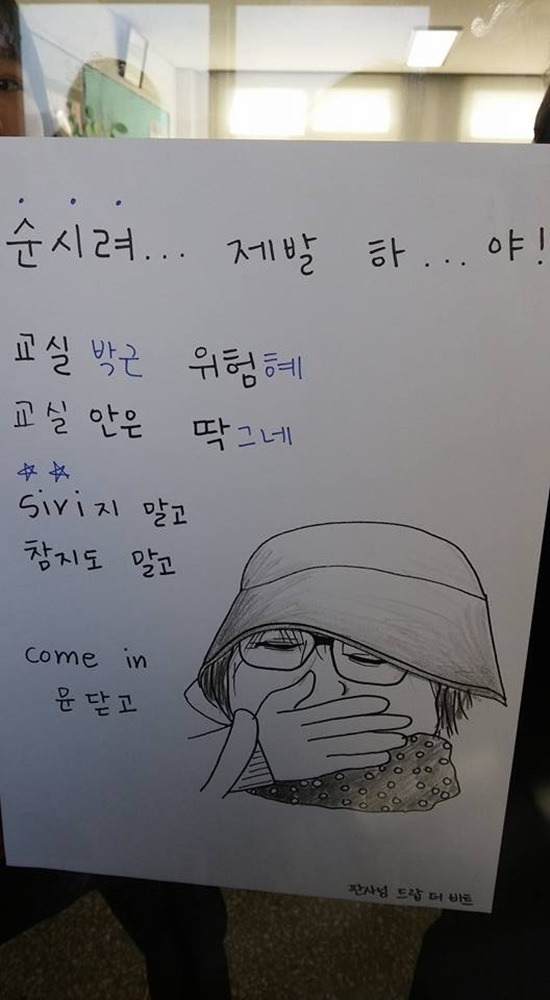 순시려... 제발 하...야!
교실 박근 위험혜
교실 안은 딱그네
☆☆
Siri지 말고
참지도 말고
come in
문 닫고
판사님 드랍 더 비트